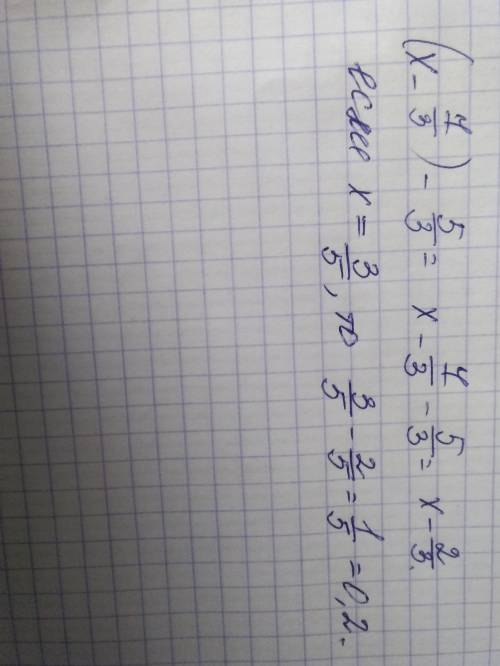 (x - 7/3) - 5/3 = x - 7/3 - 5/3 = x - 2/3.
если x = 3/5, то 3/5 - 2/5 = 1/5 = 0,2.